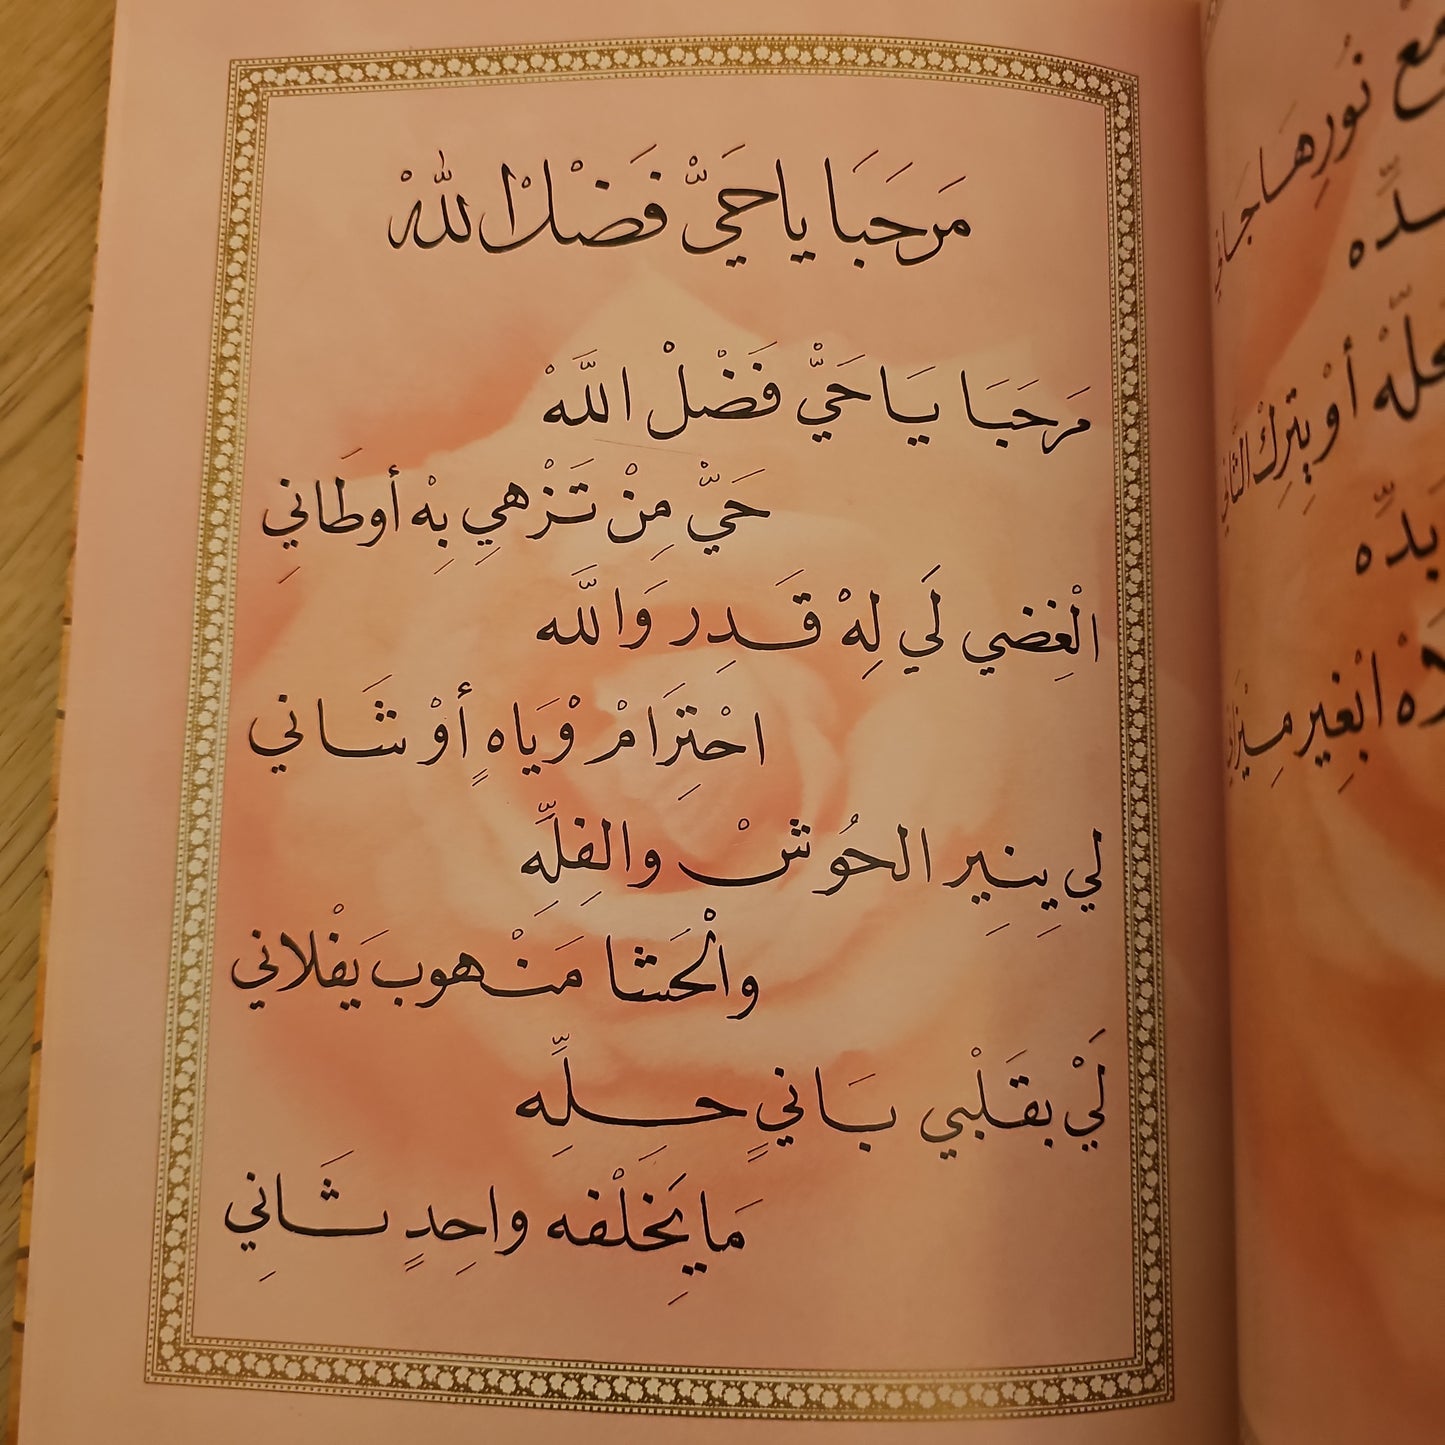 مَرحَبَا يا حَيّ فَضْلْ اللهْ
مَرحَبَا يَا حَيّ فَضْلْ اللَّهْ
حَيّ مِنْ تَزْهي بِهْ أوطَانِي
الْغِضي لَي لِهْ قَدِر وَاللَّه
احْتِرَامْ وْيَاهٍ أوْ شَاني
لي يِنِير الحُوشْ والفِلِّه
والْحَشَا مَنْهوب يَفْلاني
لَيْ بقَلْبي بَانيٍ حلِّه
مَا يَخِلْفه واحِدٍ ثَانِي
نُورِها جَاني
أوْ يِترِك الثَّاني
بَدِّه
ابْغِير مِيزَاني